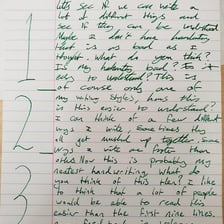 Lets see if we can write a
lot of different things and
see if they can be understood.
Maybe I don't have handwriting
that is as bad as I
thought. What do you think?
Is my handwriting bad? Is it
easy to understand? This is
of course only one of
my writing styles, hows this
is this easier to understand?
I can think of a few different
ways I write. Some times they
all get muddled up together. Some
ways I write are faster than
others. Now this is probably my
neatest handwriting. What do
you think of this then? I like
to think that a lot of people
would be able to read this
easier than the first nine lines.
1
2
3